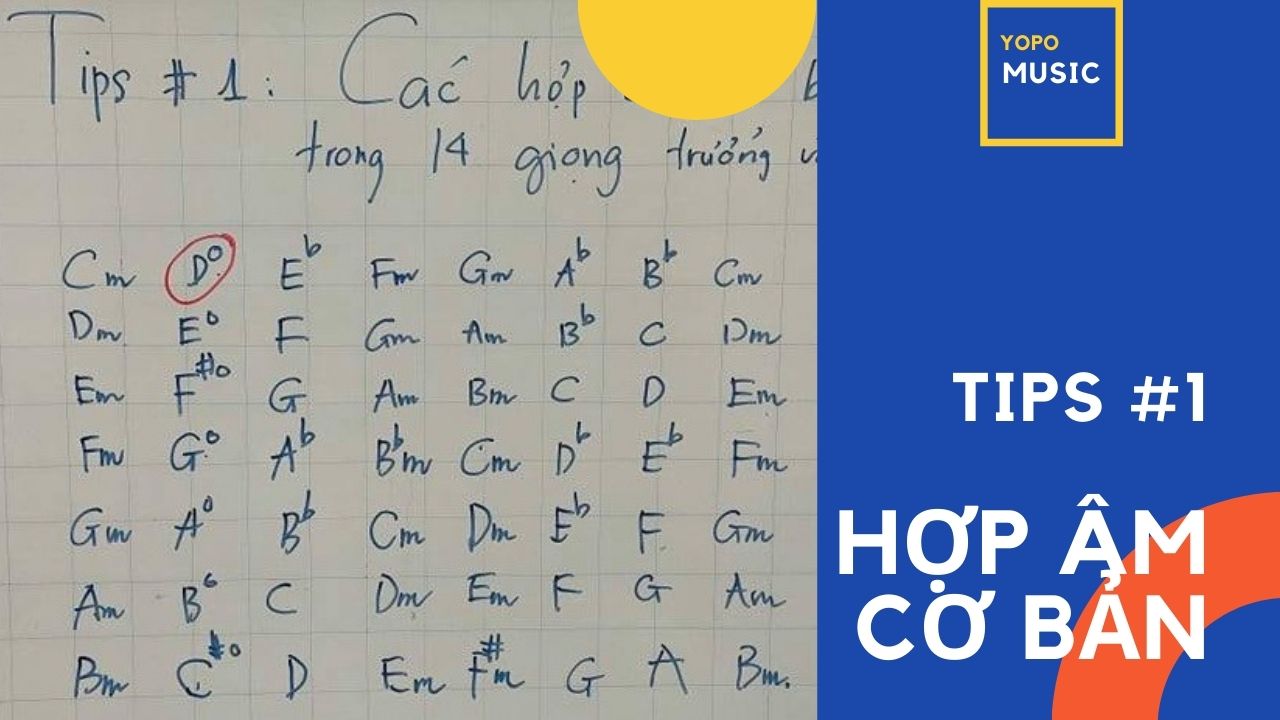 Tips #1: Các hợp
trong 14 giọng trưởng
Cm D° Eb Fm Gm Ab Bb Cm
Dm E° F Gm Am Bb C Dm
Em F#° G Am Bm C D Em
Fm G° Ab Bbm Cm Db Eb Fm
Gm A° Bb Cm Dm Eb F Gm
Am B° C Dm Em F G Am
Bm C#° D Em F#m G A Bm.
YOPO
MUSIC
TIPS #1
HỢP ÂM
CƠ BẢN